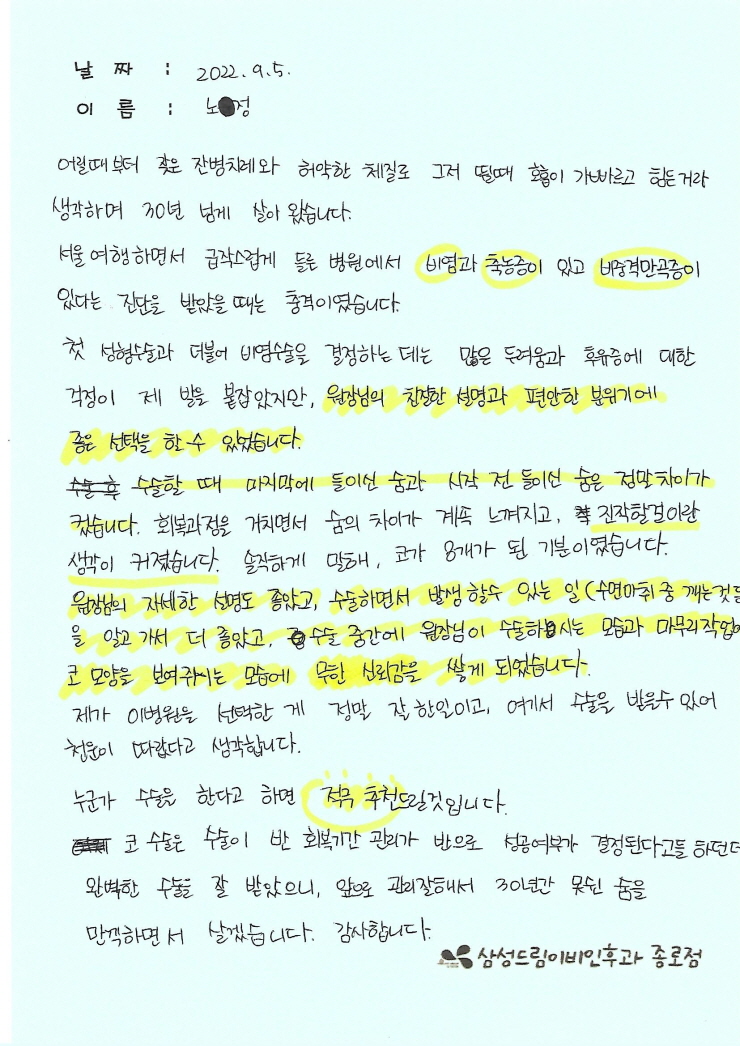 날 짜 : 2022.9.5.
이 름 : 노●정
어릴때부터 잦은 잔병치레와 허약한 체질로 그저 뛸때 호흡이 가빠르고 힘든거라
생각하며 30년 넘게 살아 왔습니다.
서울 여행하면서 급작스럽게 들른 병원에서 비염과 축농증이 있고 비중격만곡증이
있다는 진단을 받았을 때는 충격이였습니다.
첫 성형수술과 더불어 비염수술을 결정하는 데는 많은 두려움과 후유증에 대한
걱정이 제 발을 붙잡았지만, 원장님의 친절한 설명과 편안한 분위기에
좋은 선택을 할 수 있었습니다.
수술 후 수술할 때 마지막에 들이쉰 숨과 시작 전 들이쉰 숨은 정말차이가
컸습니다. 회복과정을 거치면서 숨의 차이가 계속 느껴지고, 진작할걸이란
생각이 커졌습니다. 솔직하게 말해, 코가 8개가 된 기분이였습니다.
원장님의 자세한 설명도 좋았고, 수술하면서 발생할수 있는 일(수면마취 중 깨는것들
을 알고 가서 더 좋았고, 수술 중간에 원장님이 수술하시는 모습과 마무리작업에
코 모양을 보여주시는 모습에 무한 신뢰감을 쌓게 되었습니다.
제가 이병원을 선택한 게 정말 잘한일이고, 여기서 수술을 받을수 있어
천운이 따랐다고 생각합니다.
누군가 수술을 한다고 하면 적극 추천드릴것입니다.
코 수술은 수술이 반 회복기간 관리가 반으로 성공여부가 결정된다고들 하던데
완벽한 수술을 잘 받았으니, 앞으로 관리잘해서 30년간 못쉰 숨을
만끽하면서 살겠습니다. 감사합니다.
삼성드림이비인후과 종로점